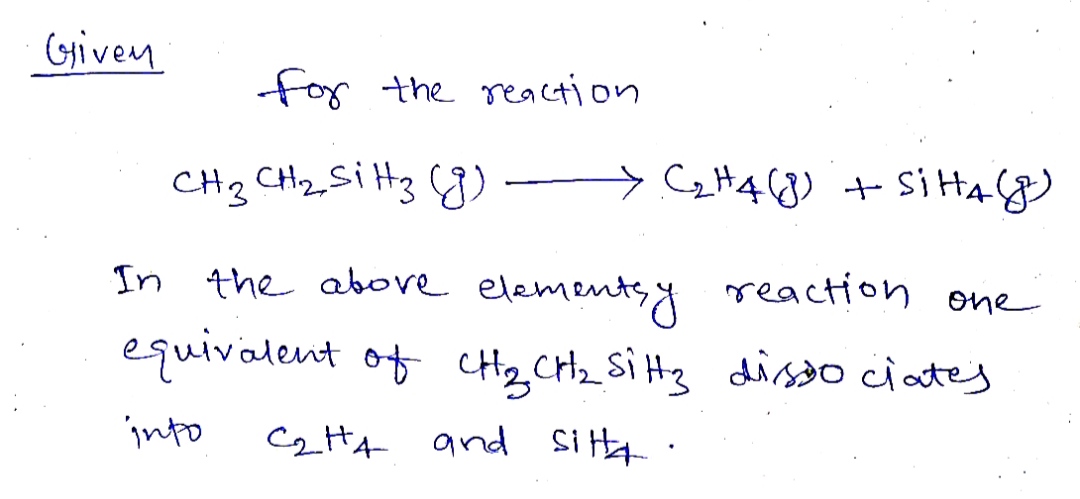 Given
for the reaction
CH3 CH2 SiH3 (g) ⟶ C2H4(g) + SiH4(g)
In the above elementry reaction one
equivalent of CH3CH2SiH3 dissociates
into C2H4 and SiH4.